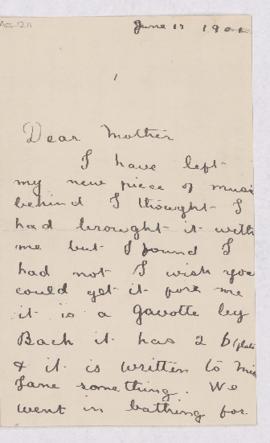 June 17 190
Dear Mother
I have left
my new piece of music
behind I thought I
had brought it with
me but I found I
had not I wish you
could get it for me
it is a gavotte by
Bach it has 2 b (flats
& it is written to Miss
Jane something. We
went in bathing for